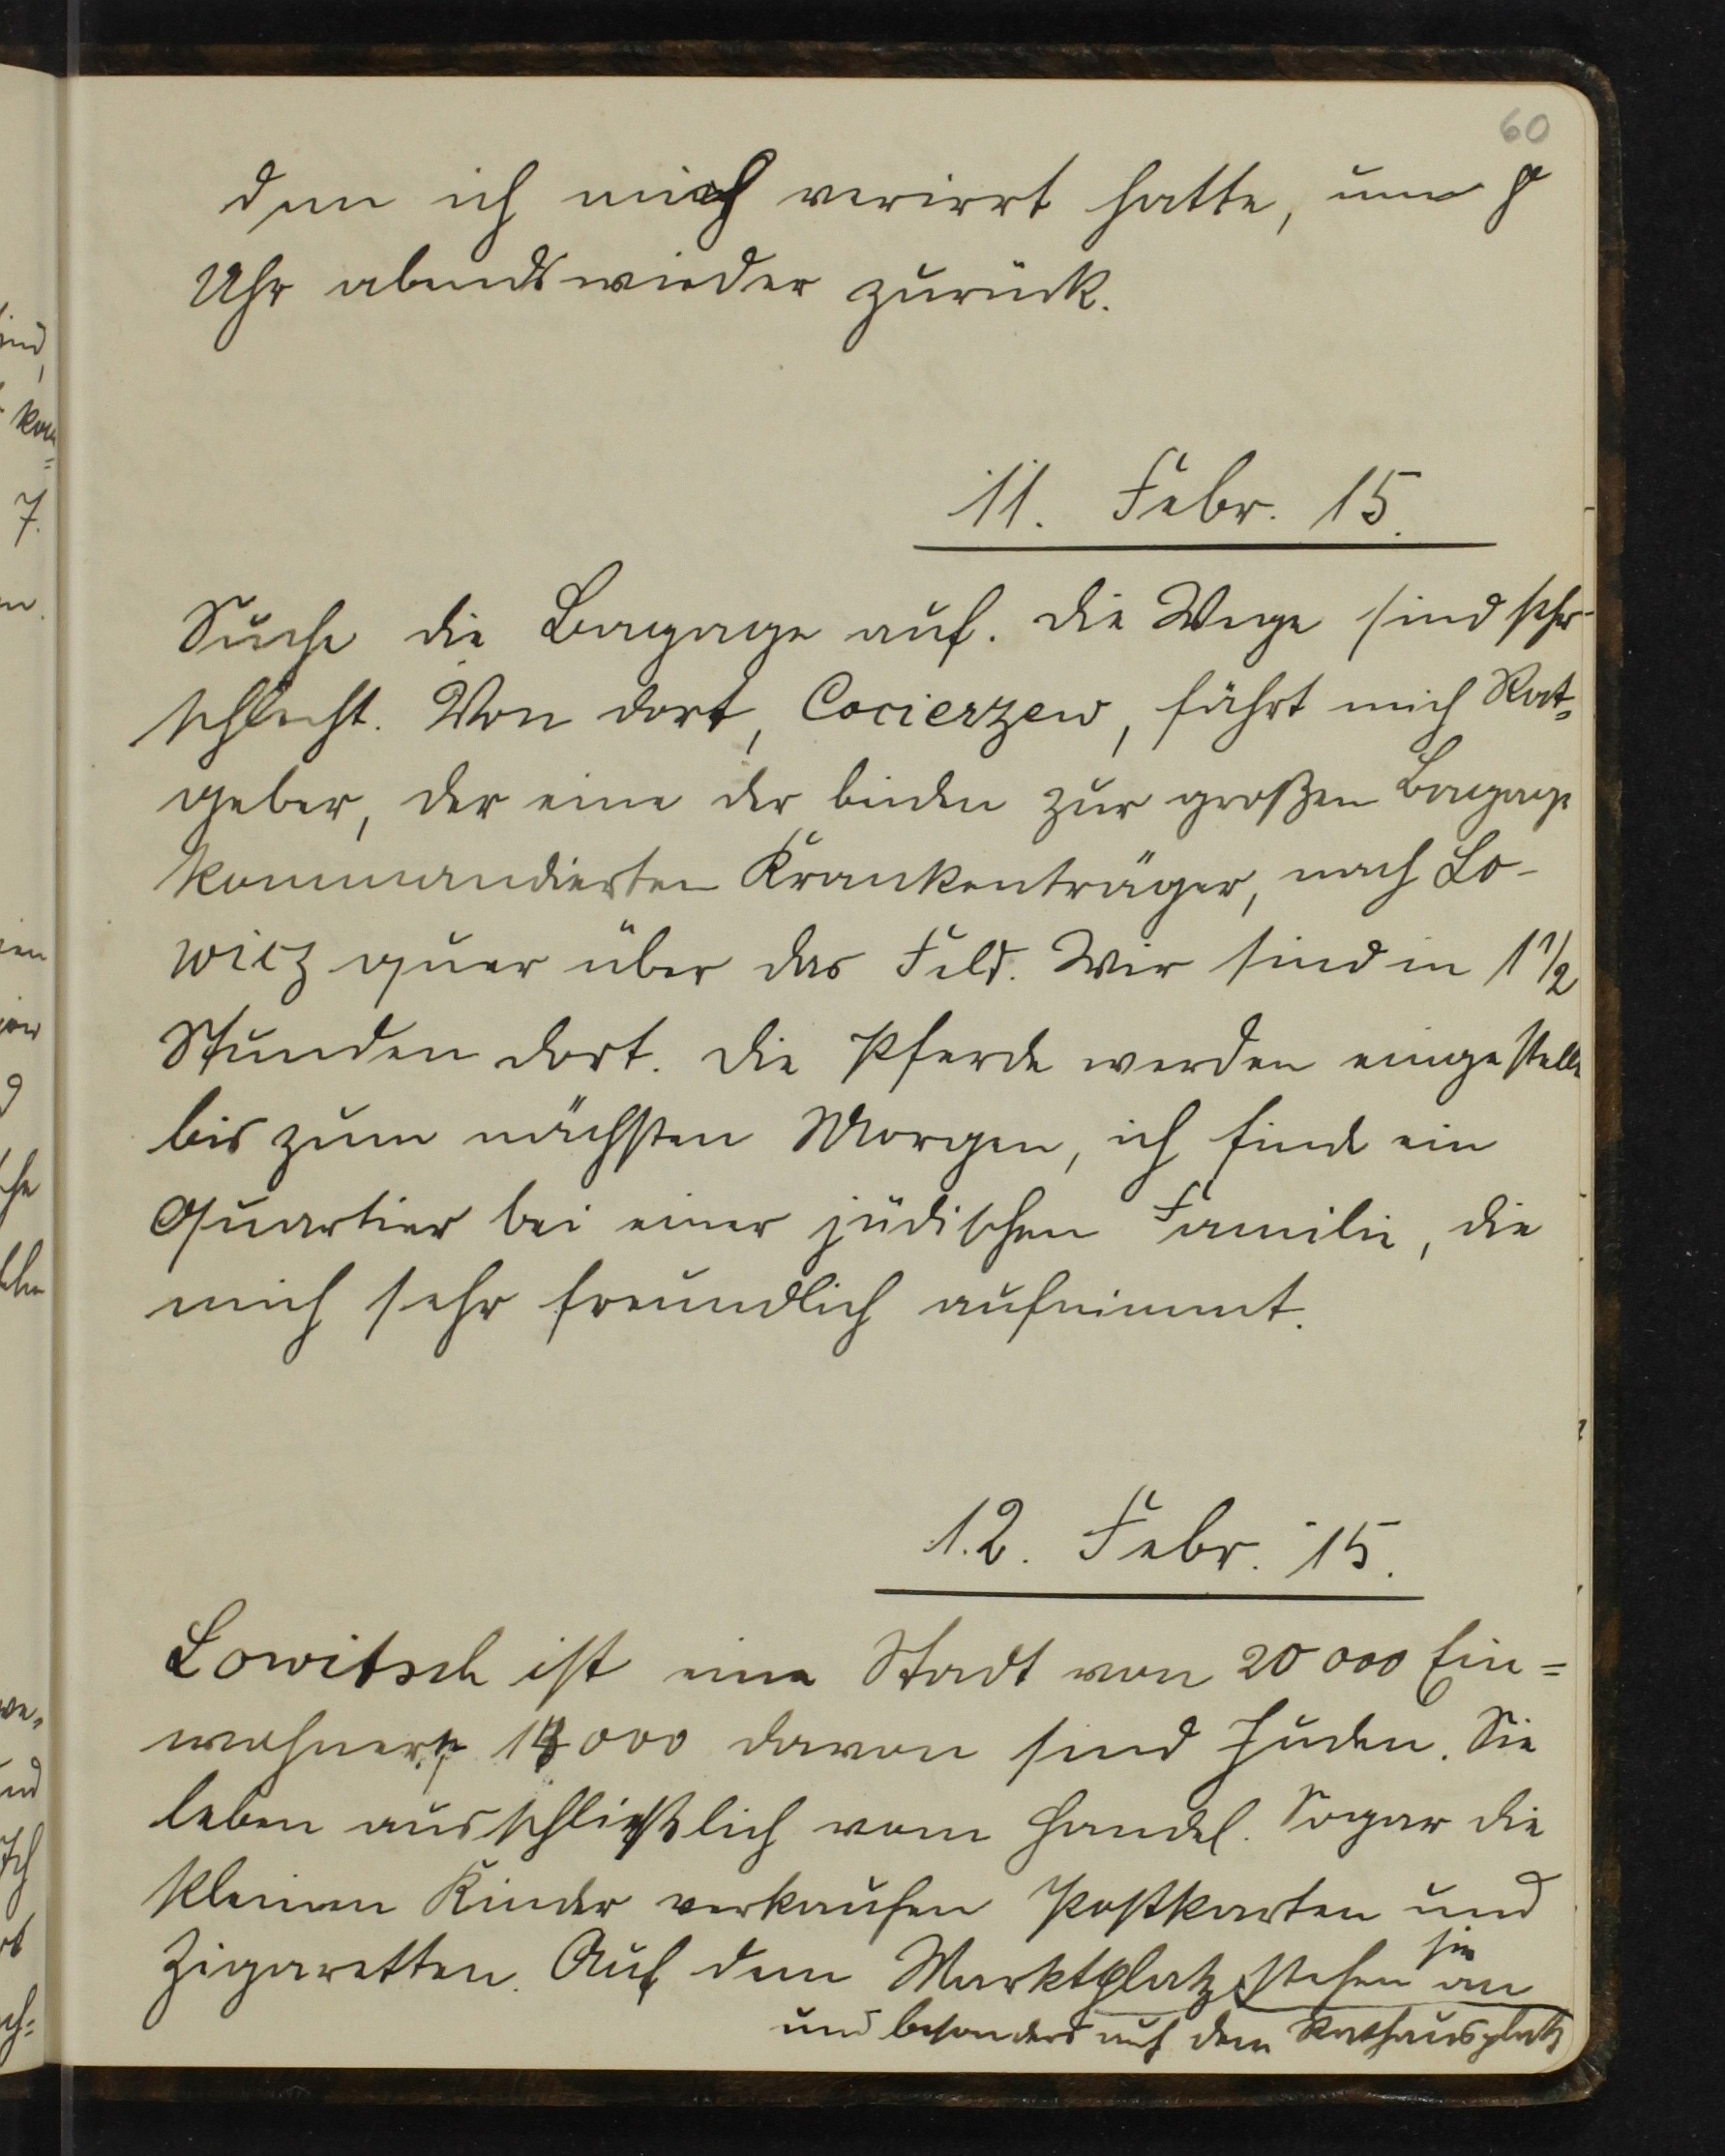 60
dem ich mich verirrt hatte, um 8
Uhr abends wieder zurück.
11. Febr. 15.
Suche die Bagage auf. Die Wege sind sehr
schlecht. Von dort, Cocierzew, fährt mich Rat=
geber, der eine der beiden zur großen Bagage
kommandierten Krankenträger, nach Lo-
wicz quer über das Feld. Wir sind in 1 1/2
Stunden dort. Die Pferde werden eingestellt
bis zum nächsten Morgen, ich finde ein
Quartier bei einer jüdischen Familie, die
mich sehr freundlich aufnimmt.
12. Febr. 15.
Lowitsch ist eine Stadt von 20 000 Ein=
wohnern, davon sind Juden. Sie
leben ausschließlich vom Handel. Sogar die
kleinen Kinder verkaufen Postkarten und
Zigaretten. Auf dem Marktplatz stehen sie an
und besonders auf dem Rathausplatz